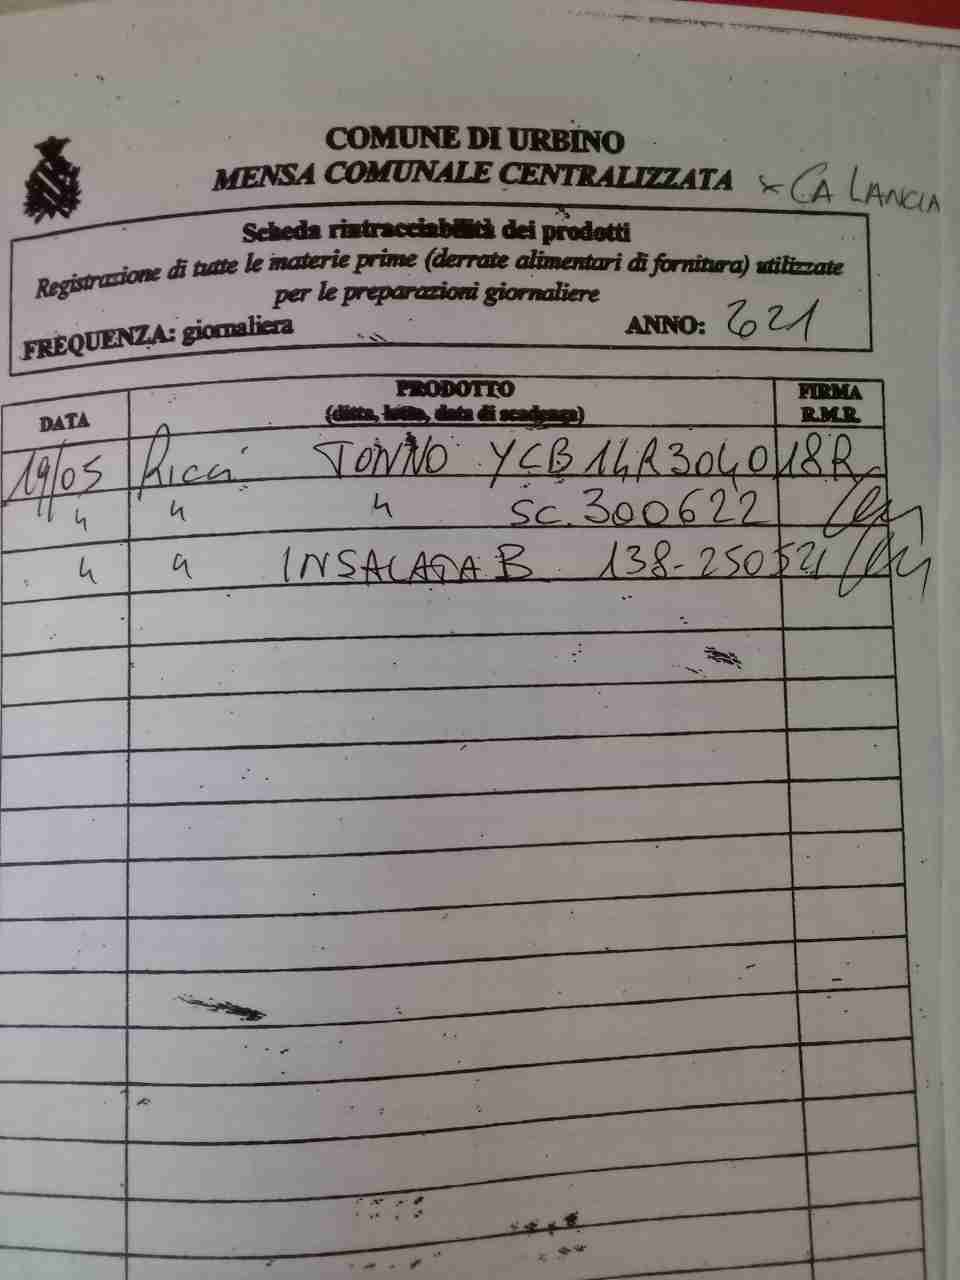 COMUNE DI URBINO
MENSA COMUNALE CENTRALIZZATA x CA LANCIA
Scheda rintracciabilità dei prodotti
Registrazione di tutte le materie prime (derrate alimentari di fornitura) utilizzate
per le preparazioni giornaliere
FREQUENZA: giornaliera ANNO: 2021
DATA PRODOTTO FIRMA
(ditta, lotto, data di scadenza) R.M.R.
19/05 Ricci TONNO YCB14R304018R
" " " SC. 300622
" " INSALATA B 138-250521